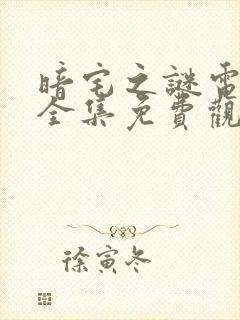 暗宅之謎電
全集免費觀
徐寅冬